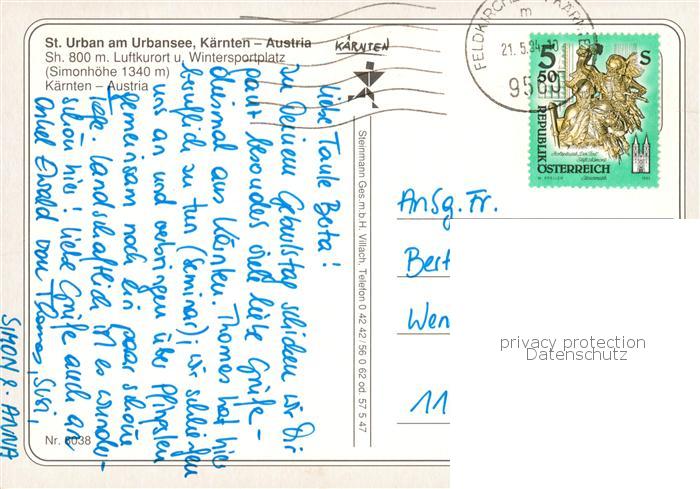 St. Urban am Urbansee, Kärnten – Austria
Sh. 800 m. Luftkurort u. Wintersportplatz
(Simonhöhe 1340 m)
Kärnten – Austria
KÄRNTEN
liebe Tante Berta!
zu Deinem Geburtstag schicken wir Dir
ganz besonders viele liebe Grüße -
diesmal aus Kärnten. Thomas hat hier
beruflich zu tun (Seminar); wir schließen
uns an und verbringen über Pfingsten
gemeinsam noch ein paar schöne
Tage. Landschaftlich ist es wunder-
schön hier! liebe Grüße auch an
Onkel Ewald von Thomas, Susi,
SIMON & ANNA
Nr. 6038
Steinmann Ges.m.b.H. Villach, Telefon 0 42 42 / 56 0 62 od. 57 5 47
FELDKIRCHEN
21.5.94-10
m
5 50 S
REPUBLIK
ÖSTERREICH
An Sg. Fr.
Bert
Wen
11
privacy protection
Datenschutz